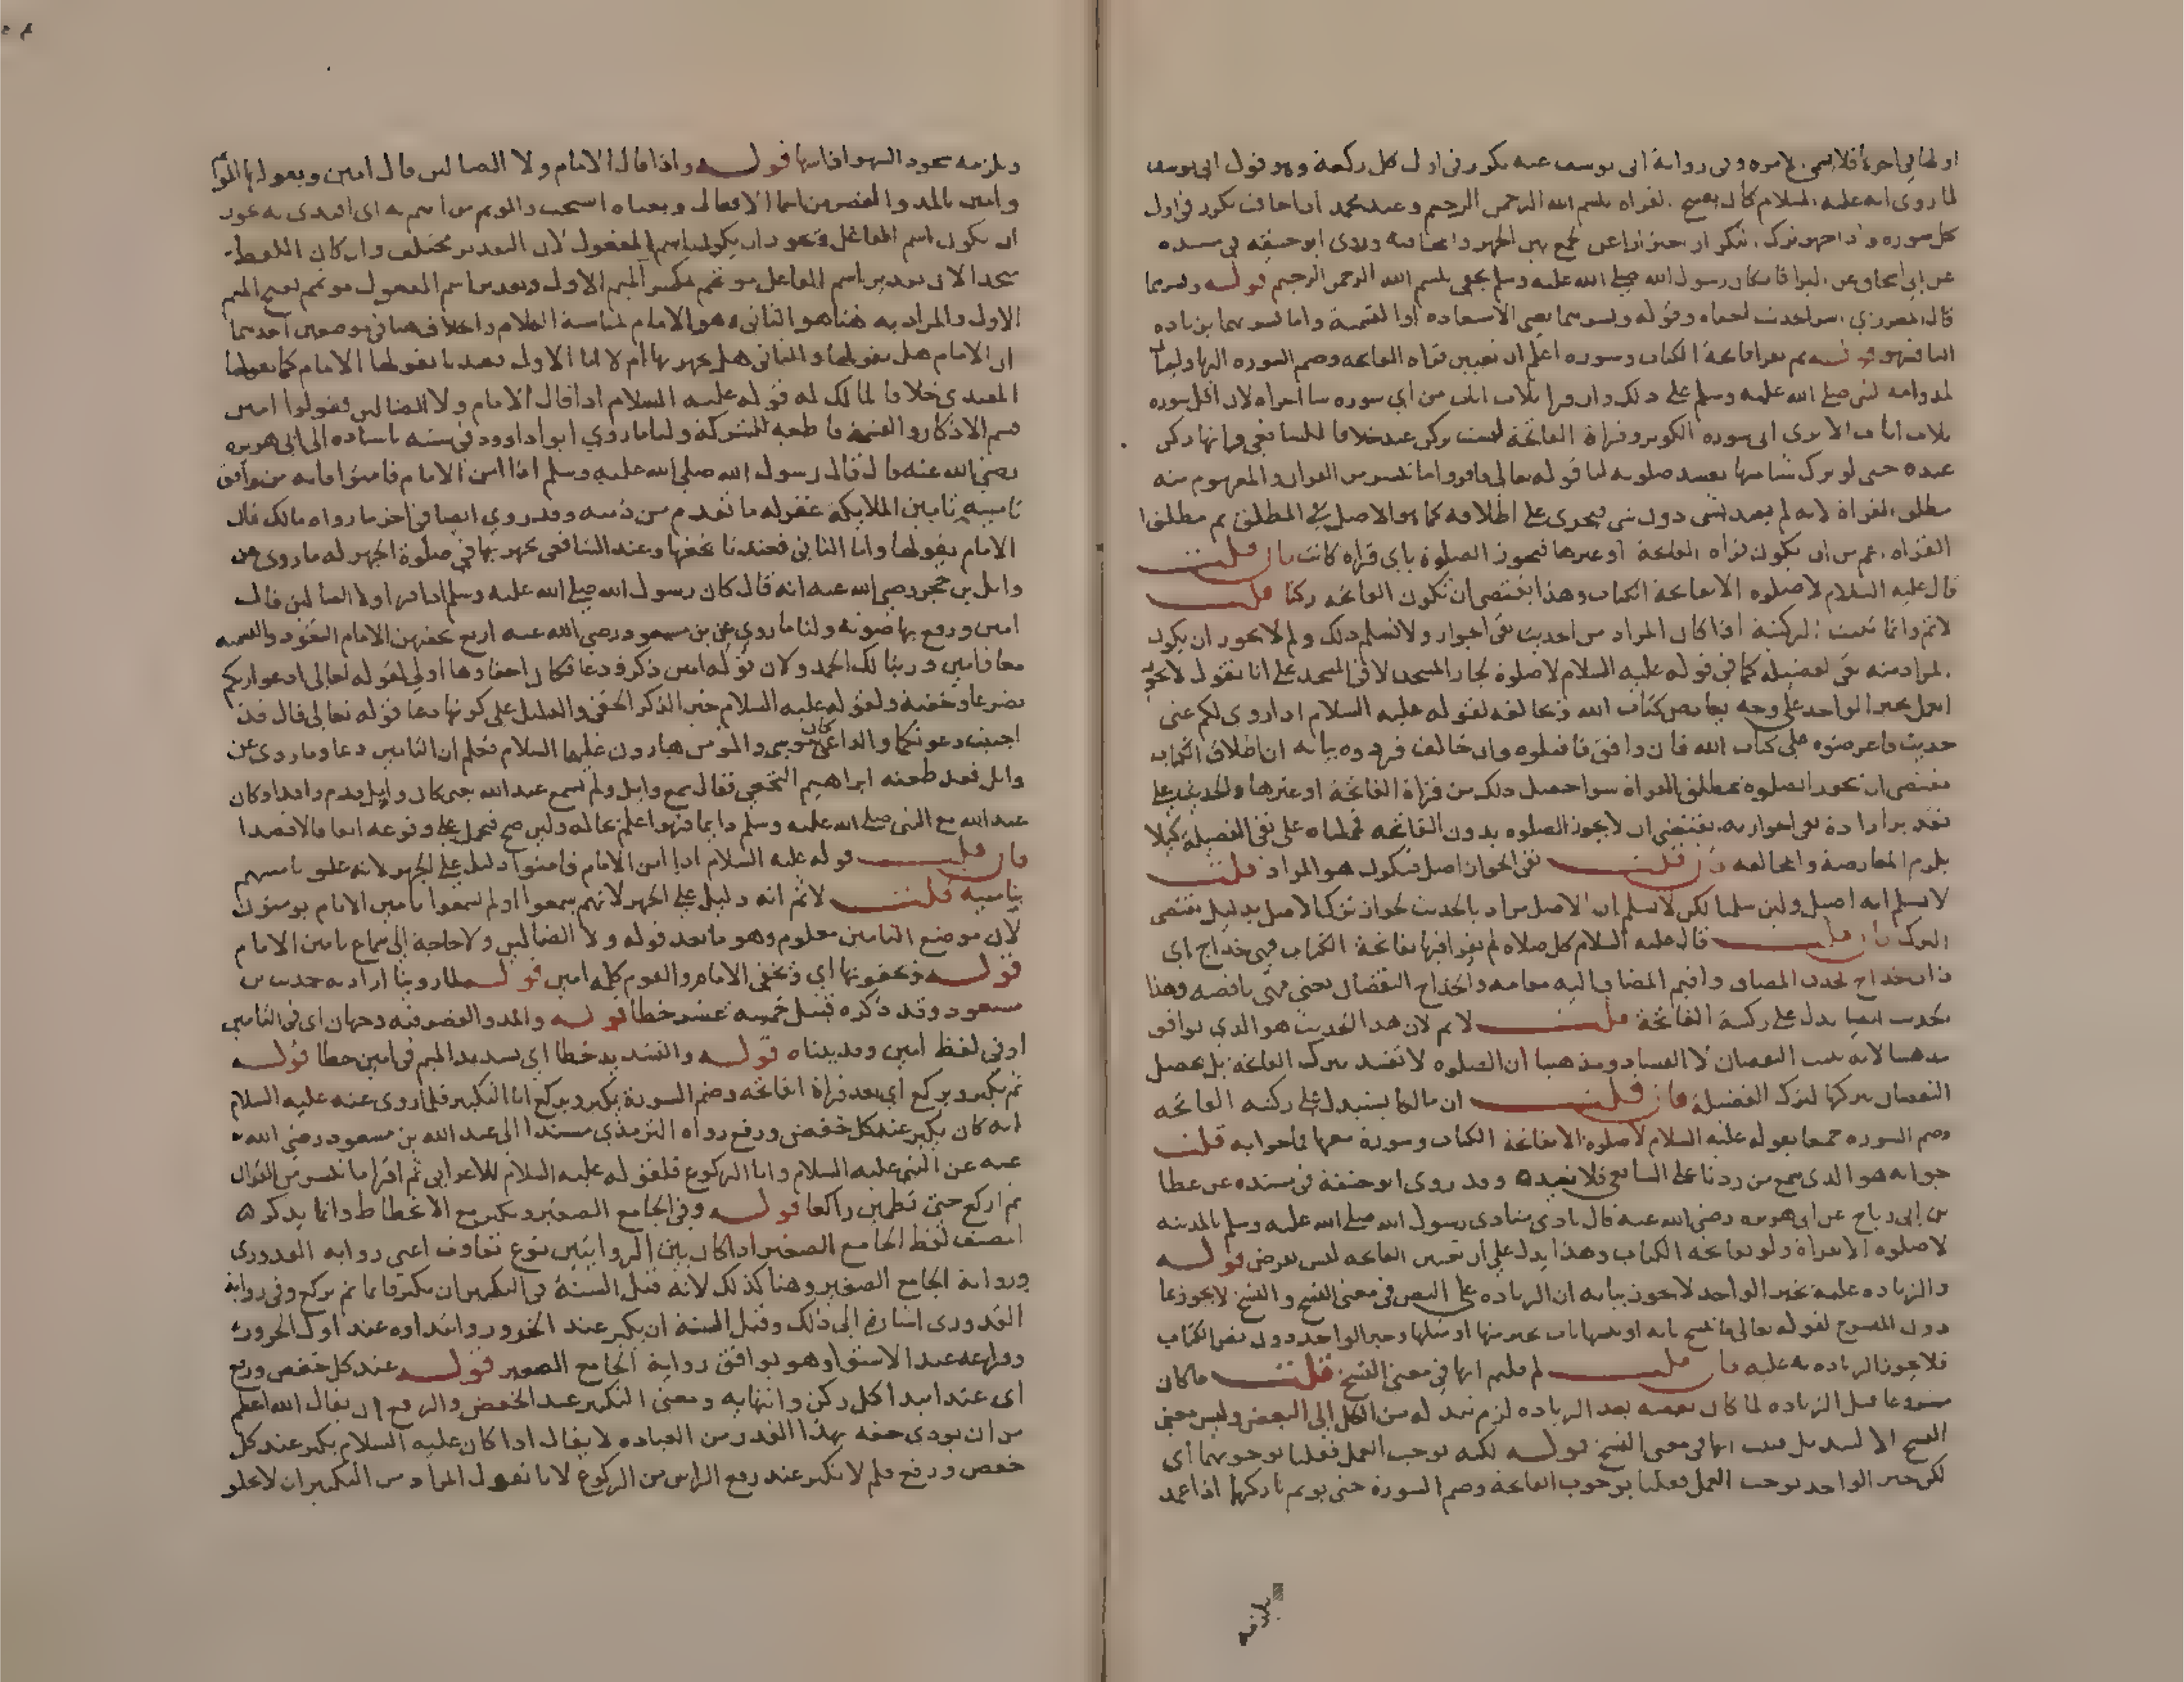 لما روى انه عليه السلام كان يفتتح القراه ببسم الله الرحمن الرحيم وعند محمد اذا خافت يكرر في اول
كل سورة واذا جهر ترك
عن ابي اسحاق عن البرا قال كان رسول الله صلى الله عليه وسلم يخفي بسم الله الرحمن الرحيم قوله ويسر بهما
قوله ثم يقرا فاتحة الكتاب وسوره اعلم ان تعيين قراه الفاتحه وضم السوره اليها
لمداومة النبي صلى الله عليه وسلم على ذلك وان قرا ثلاث ايات من اي سوره شا اجزاه لان اقل سوره
ثلاث ايات الا يرى الى سوره الكوثر وقراة الفاتحة ليست بركن عندنا خلافا للشافعي فانها ركن
عنده حتى لو ترك شيا منها تفسد صلوته لنا قوله تعالى فاقروا ما تيسر من القران والمفهوم منه
مطلق القراة لانه لم يقيد بشي دون شي فيجرى على اطلاقه كما هو الاصل في المطلق ثم مطلق
القراه اعم من ان يكون قراه الفاتحة او غيرها فيجوز الصلوة باي قراه كانت فان قلت
قال عليه السلام لا صلوه الا بفاتحة الكتاب وهذا يقتضي ان تكون الفاتحه ركنا قلت
لا نم وانما تثبت الركنية اذا كان المراد من الحديث نفي الجواز ولا نسلم ذلك ولم لا يجوز ان يكون
المراد منه نفي الفضيله كما في قوله عليه السلام لا صلوة لجار المسجد الا في المسجد على انا نقول لا يجوز
العمل بخبر الواحد على وجه يخالف كتاب الله لقوله عليه السلام اذا روى لكم عني
حديث فاعرضوه على كتاب الله فان وافق فاقبلوه وان خالف فردوه بيانه ان اطلاق الكتاب
يقتضي ان تجوز الصلوه بمطلق القراة سوا حصل ذلك من قراة الفاتحة او غيرها والحديث على
تقدير ارادة نفي الجواز به يقتضي ان لا يجوز الصلوه بدون الفاتحه فحملناه على نفي الفضيلة كيلا
يلزم المعارضة والمخالفه فان قلت نفي الجواز اصل فيكون هو المراد قلت
لا نسلم انه اصل ولين سلمنا لكن لا نسلم ان الاصل مراد بالحديث لجواز ترك الاصل بدليل يقتضي
الترك فان قلت قال عليه السلام كل صلاه لم يقرا فيها بفاتحة الكتاب فهي خداج اي
ذات خداج فحذف المضاف واقيم المضاف اليه مقامه والخداج النقصان يعني فهي ناقصه وهذا
الحديث ايضا يدل على ركنية الفاتحة قلت لا نم لان هذا الحديث هو الذي يوافق
مذهبنا لانه يثبت النقصان لا الفساد ومذهبنا ان الصلوه لا تفسد بترك الفاتحة بل يحصل
النقصان بتركها لترك الفضيلة فان قلت ان مالكا يستدل على ركنيه الفاتحه
وضم السوره جميعا بقوله عليه السلام لا صلوة الا بفاتحة الكتاب وسورة معها فما جوابه قلت
جوابه هو الذي سمع من ردنا على الشافعي فلا نعيده وقد روى ابو حنيفة في مسنده عن عطا
بن ابي رباح عن ابي هريره رضي الله عنه قال نادى منادى رسول الله صلى الله عليه وسلم بالمدينه
لا صلوه الا بقراة ولو بفاتحه الكتاب وهذا يدل على ان تعيين الفاتحه ليس بفرض قوله
والزياده عليه بخبر الواحد لا يجوز بيانه ان الزياده على النص في معنى النسخ والنسخ لا يجوز بما
دون المنسوخ لقوله تعالى ما ننسخ من اية او ننسها نات بخير منها او مثلها وخبر الواحد دون نص الكتاب
فلا يجوز الزياده به عليه فان قلت لم قلتم انها في معنى النسخ قلت ما كان
مشروعا قبل الزياده لما كان بعضه بعد الزياده لزم تبديله من الكل الى البعض وليس معنى
النسخ الا التبديل فثبت انها في معنى النسخ قوله لكنه يوجب العمل فقلنا بوجوبهما اي
لكن خبر الواحد يوجب العمل فقلنا بوجوب الفاتحة وضم السورة حتى يوثم تاركها اذا عمد
يلزمه
ويلزمه سجود السهو اذا سها قوله واذا قال الامام ولا الضالين قال امين ويقولها الموتم
وامين بالمد والقصر من اسما الافعال ومعناه استجب والموتم من ايتم به اي اقتدى به يجوز
ان يكون اسم الفاعل ويجوز ان يكون اسم المفعول لان التقدير مختلف وان كان اللفظ
متحدا لان تقدير اسم الفاعل موتمم بكسر الميم الاولى وتقدير اسم المفعول موتمم بفتح الميم
الاولى والمراد به هنا هو الثاني وهو الامام لمناسبة الكلام والخلاف هنا في موضعين احدهما
ان الامام هل يقولها والثاني هل يجهر بها ام لا اما الاول فعندنا يقولها الامام كما يقولها
المقتدي خلافا لمالك له قوله عليه السلام اذا قال الامام ولا الضالين فقولوا امين
قسم الاذكار والقسمة قاطعة للشركة ولنا ما روي ابو داوود في سننه باسناده الى ابي هريره
رضي الله عنه قال قال رسول الله صلى الله عليه وسلم اذا امن الامام فامنوا فانه من وافق
تامينه تامين الملايكة غفر له ما تقدم من ذنبه وقد روي ايضا في اخر ما رواه مالك فان
الامام يقولها واما الثاني فعندنا يخفيها وعند الشافعي يجهر بها في صلوة الجهر له ما روى عن
وايل بن حجر رضي الله عنه انه قال كان رسول الله صلى الله عليه وسلم اذا قرا ولا الضالين قال
امين ورفع بها صوته ولنا ما روي عن بن مسعود رضي الله عنه اربع يخفيهن الامام التعوذ والتسميه
وامين وربنا لك الحمد ولان قوله امين ذكر ودعا فكان اخفاوها اولى لقوله تعالى ادعوا ربكم
تضرعا وخفية ولقوله عليه السلام خير الذكر الخفي والدليل على كونها دعا قوله تعالى قال قد
اجيبت دعوتكما والداعي كان موسى والمومن هارون عليهما السلام فعلم ان التامين دعا وما روى عن
وايل فقد طعنه ابراهيم النخعي فقال سمع وايل ولم يسمع عبد الله
عبد الله مع النبي صلى الله عليه وسلم دايما فهو اعلم بحاله ولين صح فيحمل على وقوعه اتفاقا لا قصدا
فان قلت قوله عليه السلام اذا امن الامام فامنوا دليل على الجهر لانه علق تامينهم
بتامينه قلت لا نم انه دليل على الجهر لانهم سمعوا اولم يسمعوا تامين الامام يومنون
لان موضع التامين معلوم وهو ما بعد قوله ولا الضالين ولا حاجة الى سماع تامين الامام
قوله ويخفونها اي ويخفي الامام والقوم كلمه امين قوله لما روينا اراد به حديث بن
مسعود وقد ذكره قبل خمسه عشر خطا قوله والمد والقصر فيه وجهان اي في التامين
او في لفظ امين وقد بيناه قوله والتشديد خطا اي تشديد الميم في امين خطا قوله
ثم يكبر ويركع اي بعد قراة الفاتحه وضم السورة يكبر ويركع اما التكبير فلما روى عنه عليه السلام
انه كان يكبر عند كل خفض ورفع رواه الترمذي مسندا الى عبد الله بن مسعود رضي الله
عنه عن النبي عليه السلام واما الركوع فلقوله عليه السلام للاعرابي ثم اقرا ما تيسر من القران
ثم اركع حتى تطمين راكعا قوله وفي الجامع الصغير ويكبر مع الانحطاط وانما يذكر
المصنف لفظ الجامع الصغير اذا كان بين الروايتين نوع تفاوت اعني رواية القدوري
ورواية الجامع الصغير وهنا كذلك لانه قيل السنة في التكبير ان يكبر قايما ثم يركع وفي رواية
القدورى اشارة الى ذلك وقيل السنة ان يكبر عند الخرور وابتداوه عند اول الخرور
وفراغه عند الاستوا وهو يوافق رواية الجامع الصغير قوله عند كل خفض ورفع
اي عند ابتدا كل ركن وانتهايه ومعنى التكبير عند الخفض والرفع ان يقال الله اعظم
من ان يودى حقه بهذا القدر من العباده لا يقال اذا كان عليه السلام يكبر عند كل
خفض ورفع فلم لا نكبر عند رفع الراس من الركوع لانا نقول المراد من التكبير ان لا يخلو